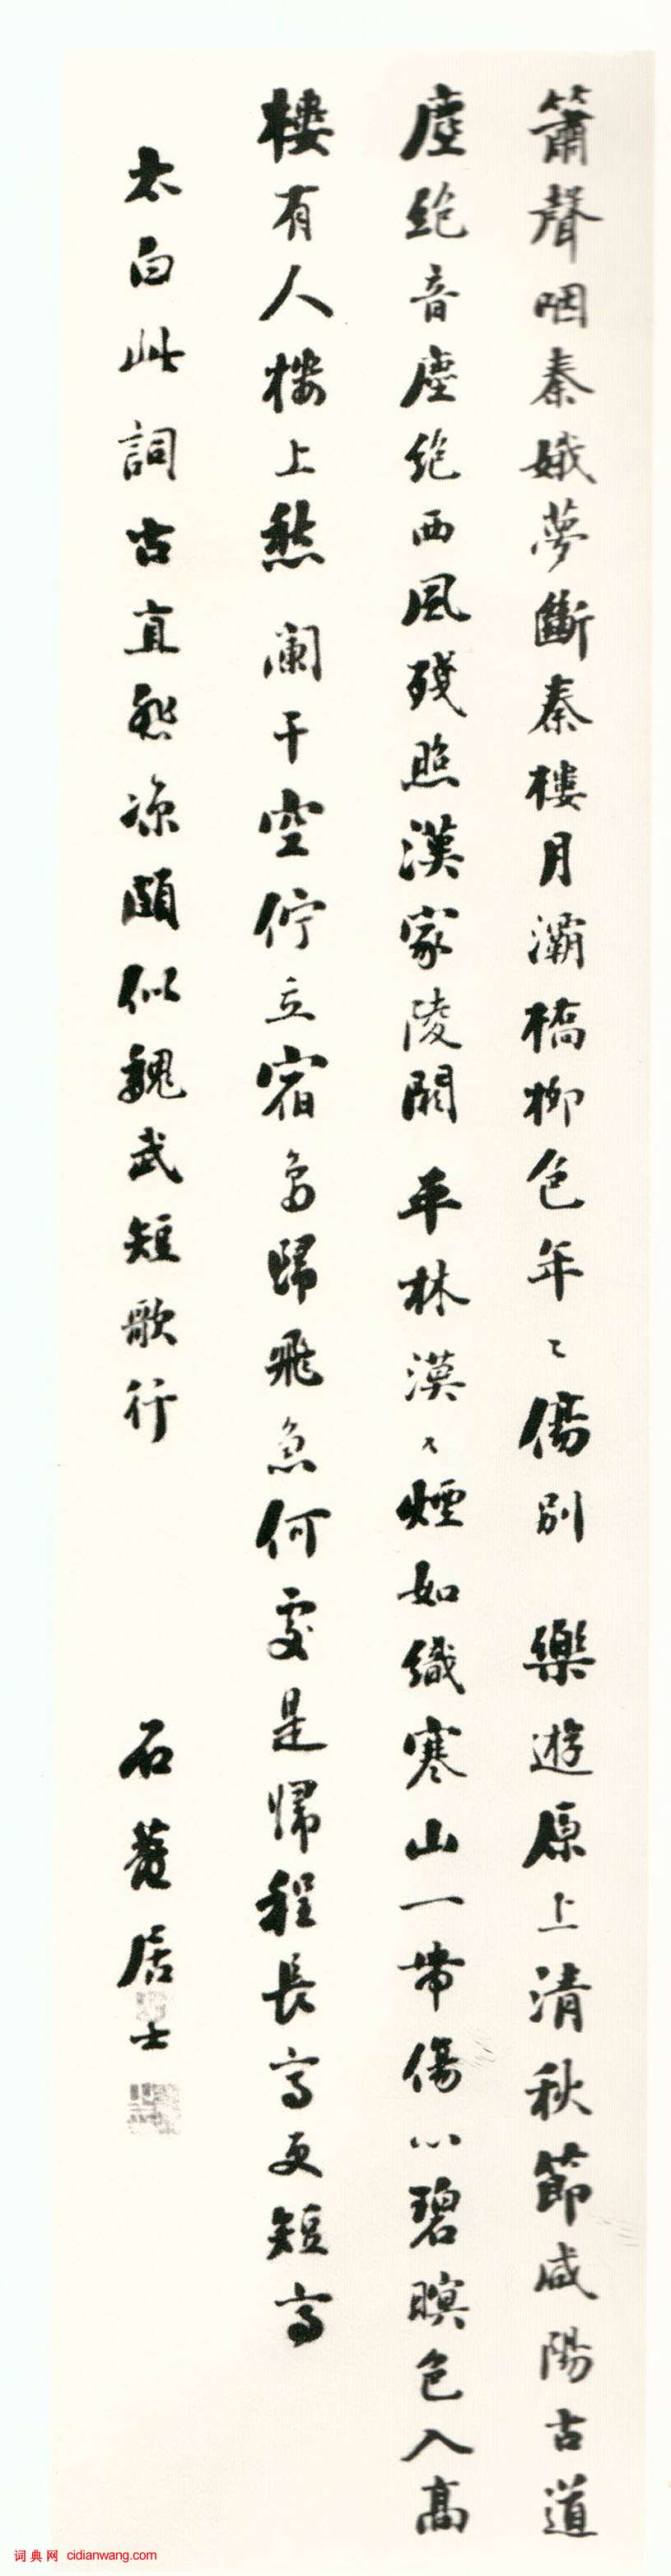 簫聲咽秦娥夢斷秦樓月灞橋柳色年〻傷別 樂遊原上清秋節咸陽古道
塵絕音塵絕西風殘照漢家陵闕 平林漠〻煙如織寒山一帶傷心碧暝色入高
樓有人樓上愁 闌干空佇立宿鳥歸飛急何處是歸程長亭更短亭
太白此詞古直悲涼頗似魏武短歌行 石菴居士
词典网 cidianwang.com